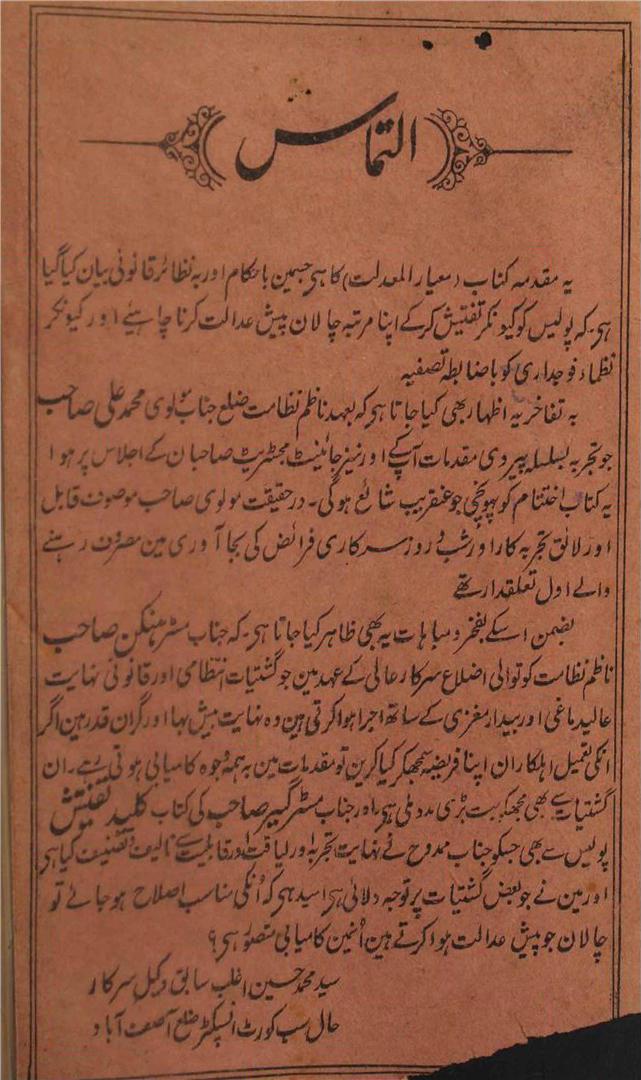 التماس
یہ مقدمہ کتاب (معیار المعدلت) کا ہی جسمین باحکام اور بہ نظائر قانونی بیان کیا گیا
ہی۔ کہ پولیس کو کیونکر تفتیش کرکے اپنا مرتبہ چالان پیش عدالت کرنا چاہئیے اور کیونکر
نظماء فوجداری کو باضابطہ تصفیہ
بہ تفاخر یہ اظہار بھی کیا جاتا ہی کہ بعہد ناظم نظامت ضلع جناب مولوی محمد علی صاحب
جو تجربہ بسلسلہ پیروی مقدمات آپکے اور نیز جائینٹ مجٹریٹ صاحبان کے اجلاس پر ہوا
یہ کتاب اختتام کو پہونچی جو عنقریب شائع ہوگی۔ درحقیقت مولوی صاحب موصوف قابل
اور لائق تجربہ کار اور شب و روز سرکاری فرائض کی بجا آوری مین مصروف رہنے
والے اول تعلقدار تھے
بضمن اسکے بفخر و مباہات یہ بھی ظاہر کیا جاتا ہی۔ کہ جناب مسٹر ہنکن صاحب
ناظم نظامت کوتوالی اضلاع سرکار عالی کے عہد مین جو گشتیات انتظامی اور قانونی نہایت
عالیدماغی اور بیدار مغزی کے ساتھ اجرا ہوا کرتی ہین وہ نہایت بیش بہا اور گران قدر ہین اگر
انکی تعمیل اہلکاران اپنا فریضہ سمجھکر کیا کرین تو مقدمات مین بہمہ وجوہ کامیابی ہوتی رہے۔ ان
گشتیات سے بھی مجھکو بہت بڑی مدد ملی ہی۔ اور جناب مسٹر گبیر صاحب کی کتاب کلید تفتیش
پولیس سے بھی جسکو جناب ممدوح نے نہایت تجربہ اور لیاقت اور قابلیت سے تالیف و تصنیف کیا ہی
اور مین نے جو بعض گشتیات پر توجہ دلائی ہی امید ہی کہ اُنکی مناسب اصلاح ہو جائے تو
چالان جو پیش عدالت ہوا کرتے ہین اُنمین کامیابی متصور ہی؟
سید محمد حسین اغلب سابق وکیل سرکار
حال سب کورٹ انسپکٹر ضلع آصف آباد